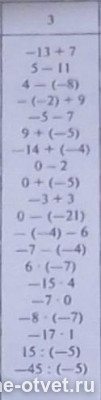 3
−13 + 7
5 − 11
4 − (−8)
−(−2) + 9
−5 − 7
9 + (−5)
−14 + (−4)
0 − 2
0 + (−5)
−3 + 3
0 − (−21)
−(−4) − 6
−7 − (−4)
6 · (−7)
−15 · 4
−7 · 0
−8 · (−7)
−17 · 1
15 : (−5)
−45 : (−5)
e-otvet.ru